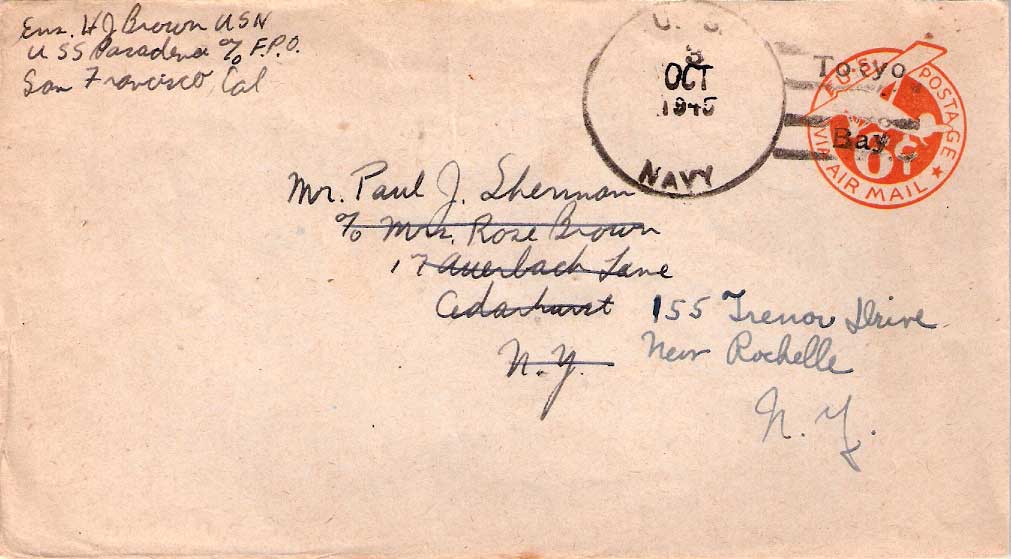 Ens. HJ Brown USN
USS Pasadena c/o F.P.O.
San Francisco, Cal
U. S.
3
OCT
1945
NAVY
Tokyo
Bay
U.S. POSTAGE
6¢
VIA AIR MAIL
Mr. Paul J. Sherman
c/o Mrs. Rose Brown
17 Auerbach Lane
Cedarhurst
N.Y.
155 Trenor Drive
New Rochelle
N. Y.